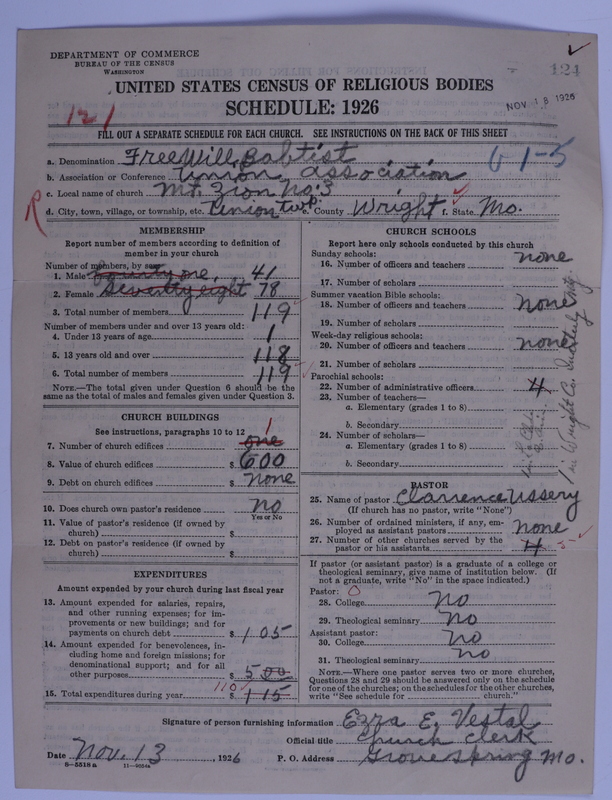 DEPARTMENT OF COMMERCE
BUREAU OF THE CENSUS
WASHINGTON
124
UNITED STATES CENSUS OF RELIGIOUS BODIES
SCHEDULE: 1926
NOV 18 1926
121
FILL OUT A SEPARATE SCHEDULE FOR EACH CHURCH. SEE INSTRUCTIONS ON THE BACK OF THIS SHEET
a. Denomination Free Will Baptist
61-5
b. Association or Conference Union association
c. Local name of church Mt. Zion No. 3
R
d. City, town, village, or township, etc. Union twp. e. County Wright f. State Mo.
MEMBERSHIP
Report number of members according to definition of
member in your church
Number of members, by sex:
1. Male 41
2. Female Seventy eight 78
3. Total number of members 119
Number of members under and over 13 years old:
4. Under 13 years of age 1
5. 13 years old and over 118
6. Total number of members 119
NOTE.—The total given under Question 6 should be the
same as the total of males and females given under Question 3.
CHURCH BUILDINGS
See instructions, paragraphs 10 to 12
7. Number of church edifices one 1
8. Value of church edifices $ 600
9. Debt on church edifices $ none
10. Does church own pastor's residence no
Yes or No
11. Value of pastor's residence (if owned by
church) $
12. Debt on pastor's residence (if owned by
church) $
EXPENDITURES
Amount expended by your church during last fiscal year
13. Amount expended for salaries, repairs,
and other running expenses; for im-
provements or new buildings; and for
payments on church debt $ 105
14. Amount expended for benevolences, in-
cluding home and foreign missions; for
denominational support; and for all
other purposes $ 5 00
110
15. Total expenditures during year $ 115
CHURCH SCHOOLS
Report here only schools conducted by this church
Sunday schools:
16. Number of officers and teachers none
17. Number of scholars
Summer vacation Bible schools:
18. Number of officers and teachers none
19. Number of scholars
Week-day religious schools:
20. Number of officers and teachers none
21. Number of scholars
Parochial schools:
22. Number of administrative officers 4
23. Number of teachers—
a. Elementary (grades 1 to 8)
b. Secondary
24. Number of scholars—
a. Elementary (grades 1 to 8)
b. Secondary
in Wright Co. Quarterly
PASTOR
25. Name of pastor Clarrence Ussery
(If church has no pastor, write "None")
26. Number of ordained ministers, if any, em-
ployed as assistant pastors none
27. Number of other churches served by the
pastor or his assistants 4 5
If pastor (or assistant pastor) is a graduate of a college or
theological seminary, give name of institution below. (If
not a graduate, write "No" in the space indicated.)
Pastor: 0
28. College No
29. Theological seminary No
Assistant pastor:
30. College No
31. Theological seminary no
NOTE.—Where one pastor serves two or more churches,
Questions 28 and 29 should be answered only on the schedule
for one of the churches; on the schedules for the other churches,
write "See schedule for church."
Signature of person furnishing information Ezra E. Vestal
Official title Church clerk
Date Nov. 13, 1926 P. O. Address Grovespring Mo.
8-5518 a 11-9024a